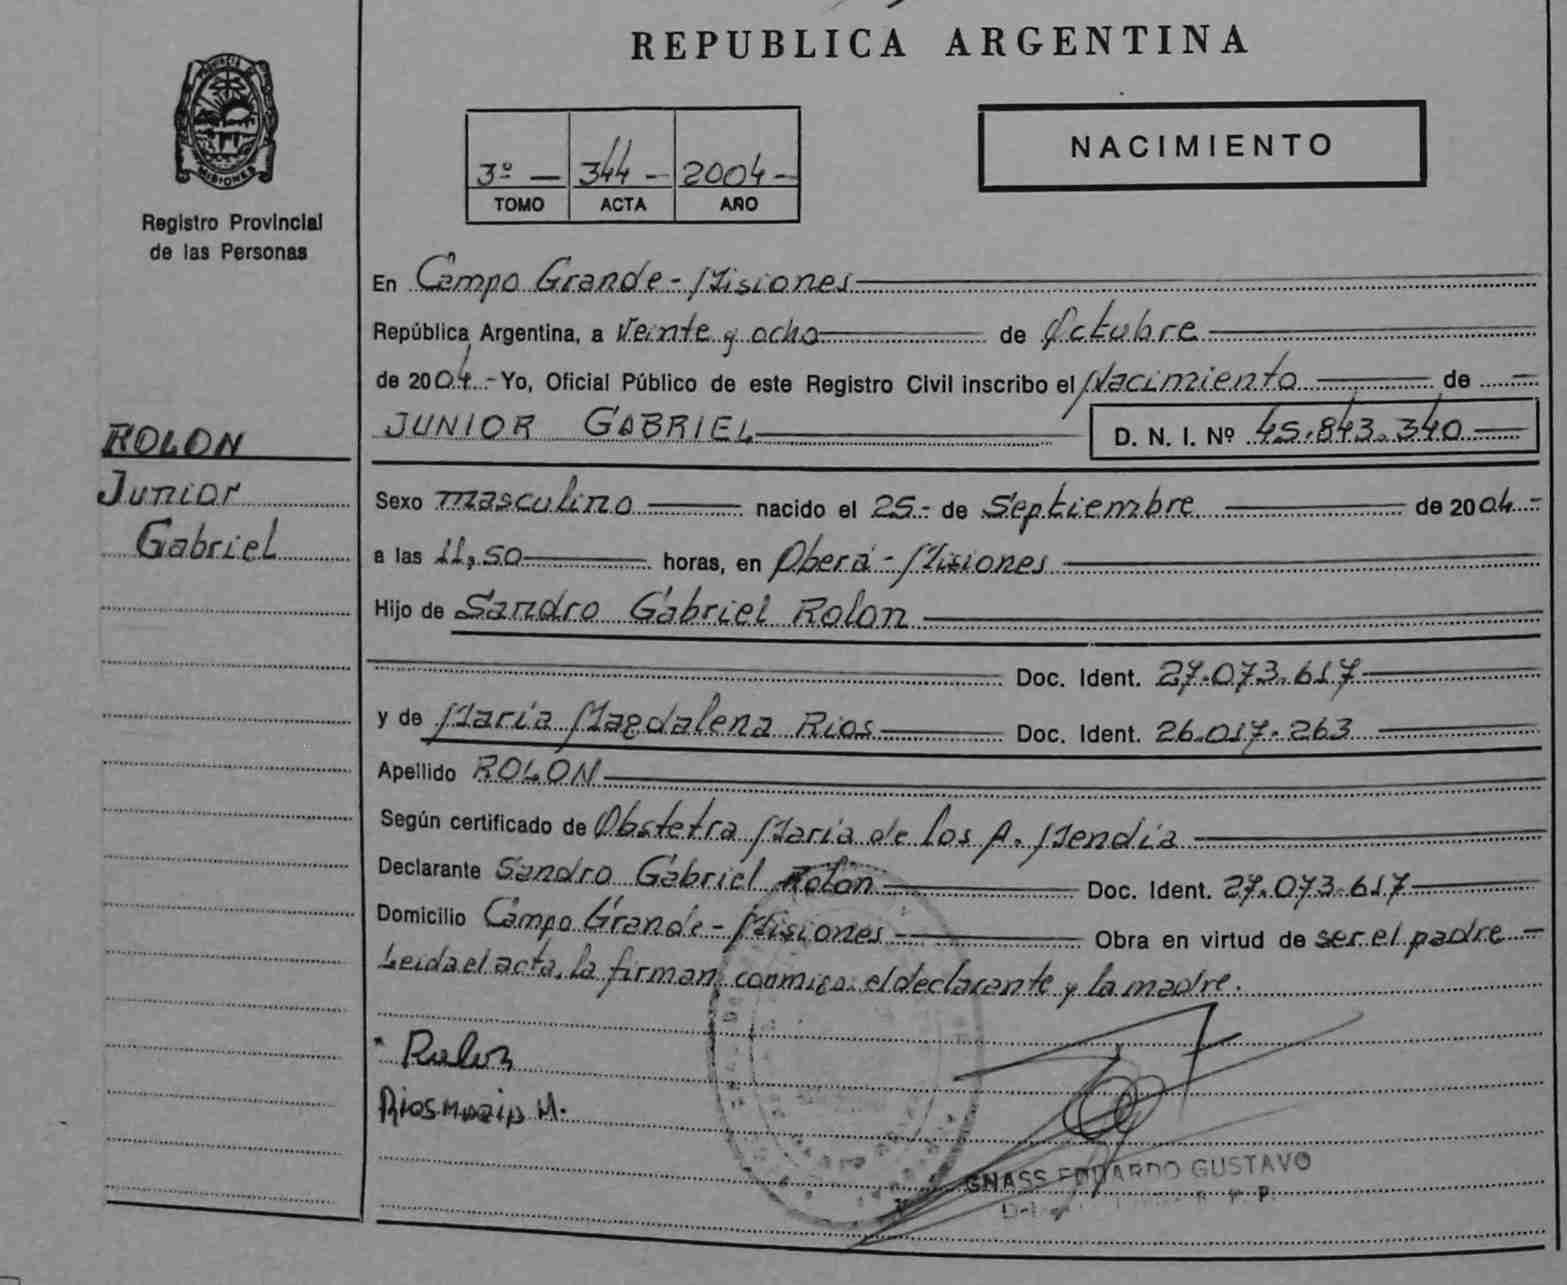 REPUBLICA ARGENTINA
PROVINCIA DE
MISIONES
Registro Provincial
de las Personas
3º - 344 - 2004 -
TOMO ACTA AÑO
NACIMIENTO
En Campo Grande - Misiones
República Argentina, a Veinte y ocho de Octubre
de 2004.- Yo, Oficial Público de este Registro Civil inscribo el Nacimiento de -
JUNIOR GABRIEL D. N. I. Nº 45.843.340
ROLON
Junior
Gabriel
Sexo masculino nacido el 25.- de Septiembre de 2004.-
a las 11,50 horas, en Oberá - Misiones
Hijo de Sandro Gabriel Rolon
Doc. Ident. 27.073.617
y de Maria Magdalena Rios Doc. Ident. 26.017.263
Apellido ROLON
Según certificado de Obstetra Maria de los A. Mendia
Declarante Sandro Gabriel Rolon Doc. Ident. 27.073.617
Domicilio Campo Grande - Misiones Obra en virtud de ser el padre -
Leida el acta, la firman conmigo: el declarante y la madre.
Rolon
Rios Maria M.
GNASS EDUARDO GUSTAVO